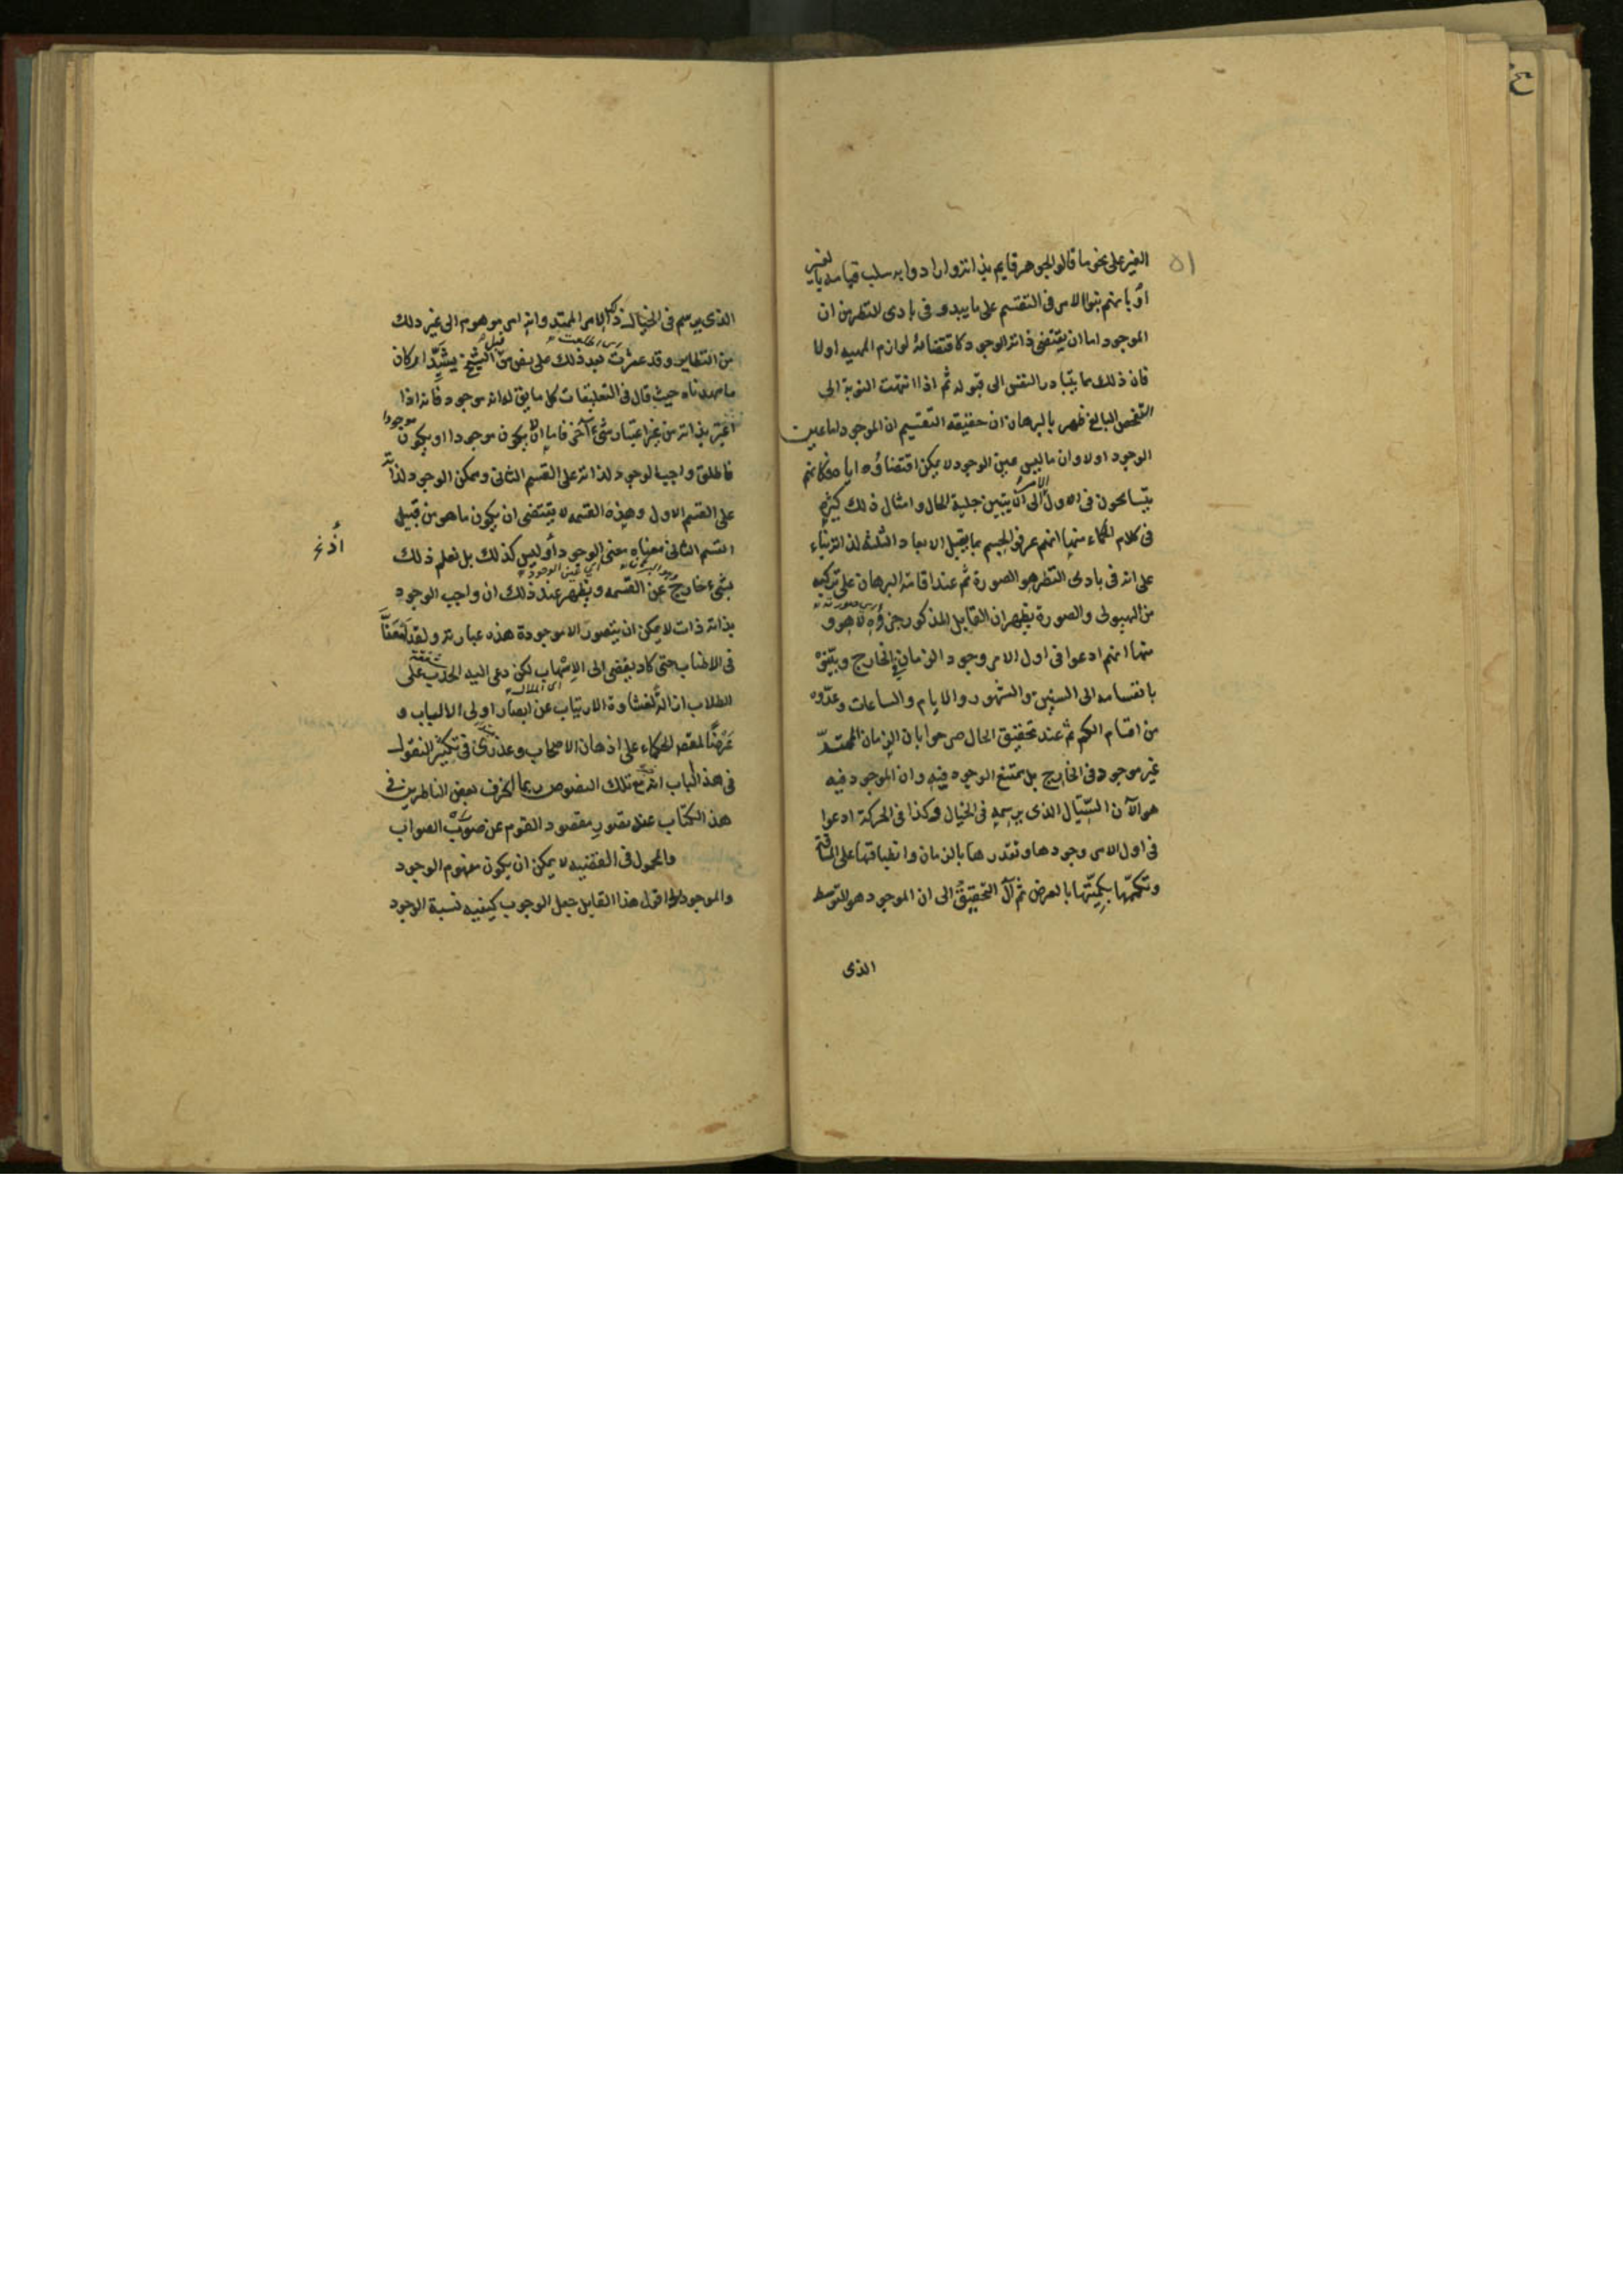 الغير على نحو ما قالوا الجوهر قايم بذاته وارادوا به سلب قيامه بالغير
او بانهم بنوا الامر في التقسيم على ما يبدو في بادى النظر من ان
الموجود اما ان يقتضى ذاته الوجود كاقتضاء لوازم المهيه اولا
فان ذلك مما يتبادر النفس الى قبوله ثم اذا انتهت النوبة الى
الفحص البالغ ظهر بالبرهان ان حقيقه التقسيم ان الموجود اما عين
الوجود اولا وان ما ليس عين الوجود لا يمكن اقتضاؤه اياه فكانهم
يتسامحون في اول الامر الى ان يتبين جلية الحال وامثال ذلك كثيره
في كلام الحكماء منها انهم عرفوا الجسم بما يقبل الابعاد الثلثه لذاته بناء
على انه في بادى النظر هو الصورة ثم عند اقامة البرهان على تركبه
من الهيولى والصورة يظهر ان القابل المذكور جزؤه لا هو و
منها انهم ادعوا في اول الامر وجود الزمان في الخارج وبينوه
بانقسامه الى السنين والشهور والايام والساعات وعدّوه
من اقسام الكم ثم عند تحقيق الحال صرحوا بان الزمان الممتدّ
غير موجود في الخارج بل يمتنع الوجود فيه وان الموجود فيه
هو الآن السيّال الذى يرسمه في الخيال وكذا في الحركة ادعوا
في اول الامر وجودها وتقدرها بالزمان وانطباقها على المسافة
وتكممّها بكميّتها بالعرض ثم آل التحقيق الى ان الموجود هو التوسط
الذى
الذى يرسم في الخيال ذلك الامر الممتد وانه امر موهوم الى غير ذلك
من النظاير وقد عثرت بعد ذلك على نص من الشيخ يشيّد اركان
ما مهدناه حيث قال في التعليقات كل ما يق له انه موجود فانه اذا
اعتبر بذاته من غير اعتبار شىء آخر فاما ان لا يكون موجودا او يكون موجودا
فاطلق واجب الوجود لذاته على القسم الثانى وممكن الوجود لذاته
على القسم الاول وهذه القسمه لا يقتضى ان يكون ما هو من قبيل
القسم الثانى معناه معنى الوجود أو ليس كذلك بل نعلم ذلك
بشىء خارج عن القسمه ويظهر عند ذلك ان واجب الوجود
بذاته ذات لا يمكن ان يتصور الا موجودة هذه عبارته ولقد
في الاطناب حتى كاد يفضى الى الاسهاب لكن دعى اليه الحدب على
الطلاب ازالة لغشاوة الارتياب عن ابصار اولى الالباب و
عرضًا لمقصد الحكماء على اذهان الاصحاب وعذرى في تكثير النقول
في هذا الباب انه مع تلك النصوص ربما انحرف بعض الناظرين في
هذا الكتاب عند تصور مقصود القوم عن صوب الصواب
والمحمول في القضيه لا يمكن ان يكون مفهوم الوجود
والموجود الخ اقول هذا القايل جعل الوجوب كيفيه نسبة الوجود